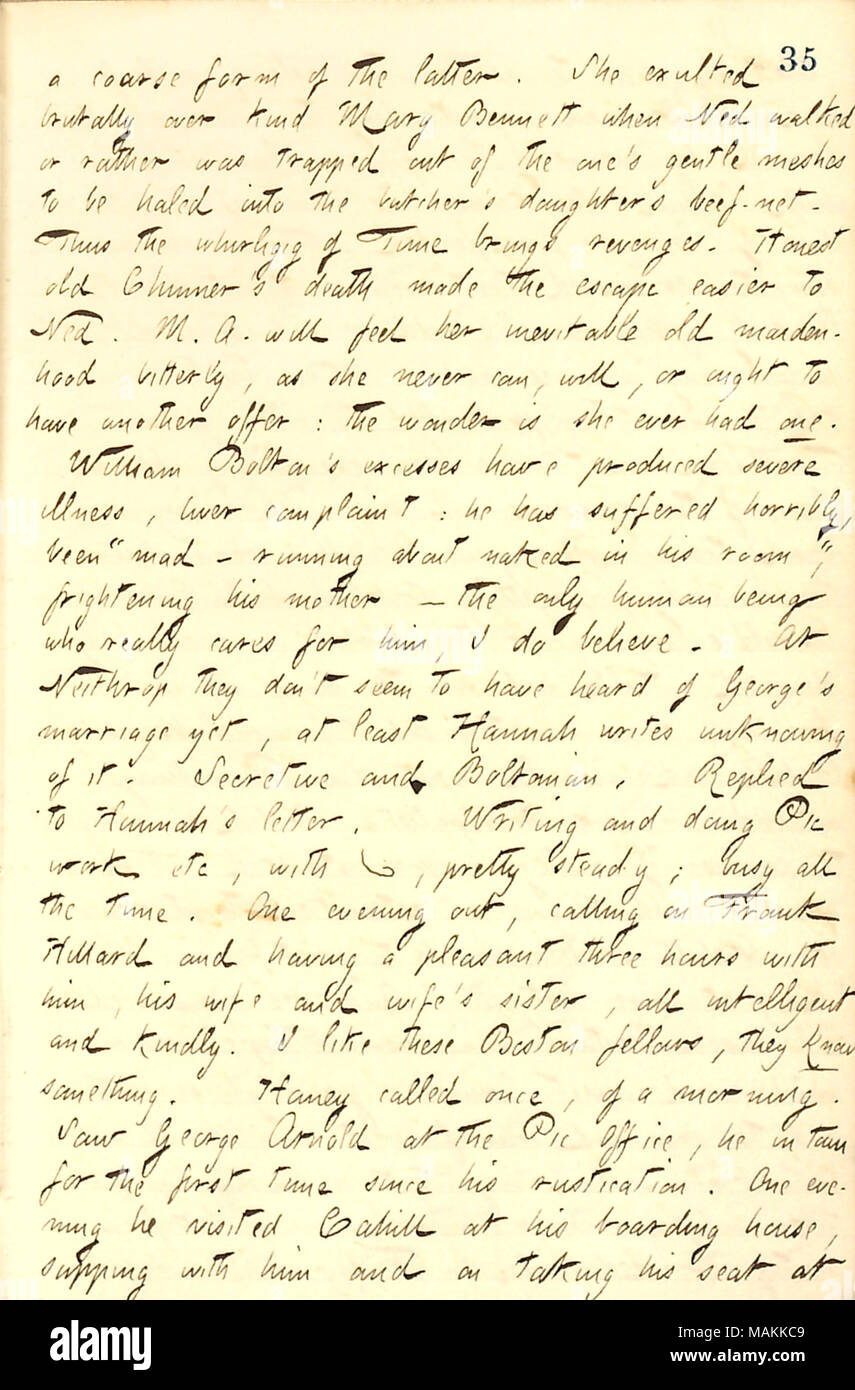 35
a coarse form of the latter. She exulted
brutally over kind Mary Bennett when Ned walked
or rather was trapped out of the one's gentle meshes
to be haled into the butcher's daughter's beef-net.
Thus the whirligig of Time brings revenges. Honest
old Chinner's death made the escape easier to
Ned. M. A. will feel her inevitable old maiden-
hood bitterly, as she never can, will, or ought to
have another offer: the wonder is she ever had one.
William Bolton's excesses have produced severe
illness, liver complaint: he has suffered horribly,
been "mad - running about naked in his room",
frightening his mother — the only human being
who really cares for him, I do believe. At
Neithrop they don't seem to have heard of George's
marriage yet, at least Hannah writes unknowing
of it. Secretive and Boltonian. Replied
to Hannah's letter. Writing and doing Pic
work etc, with, pretty steady; busy all
the time. One evening out, calling on Frank
Hillard and having a pleasant three hours with
him, his wife and wife's sister, all intelligent
and kindly. I like these Boston fellows, they know
something. Haney called once, of a morning.
Saw George Arnold at the Pic Office, he in town
for the first time since his rustication. One eve-
ning he visited Cahill at his boarding house,
supping with him and on taking his seat at
alamy
Image ID: MAKKC9
www.alamy.com